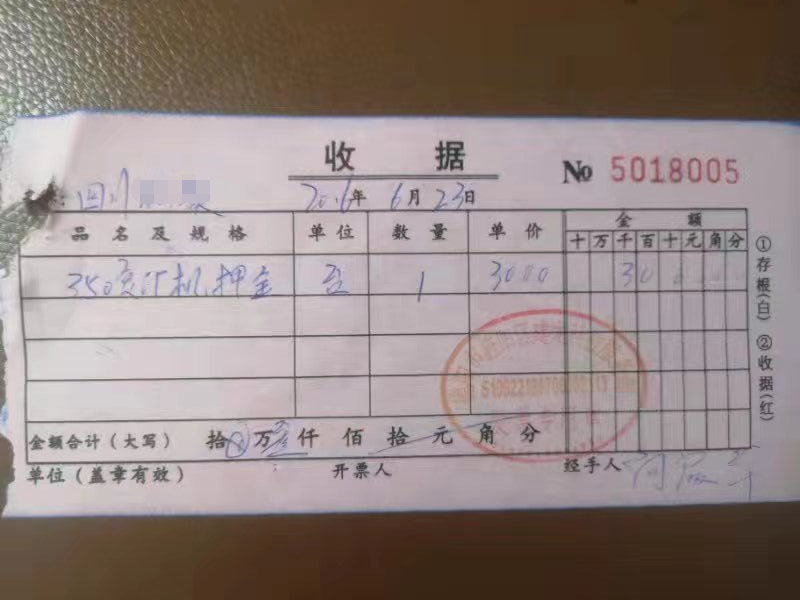 收 据
№ 5018005
四川
2016年 6月 23日
品 名 及 规 格 单 位 数 量 单 价 金 额
十 万 千 百 十 元 角 分
押金 1 3000 30
金额合计（大写） 拾 万 叁 仟 佰 拾 元 角 分
单位（盖章有效） 开票人 经手人
①存根(白) ②收据(红)